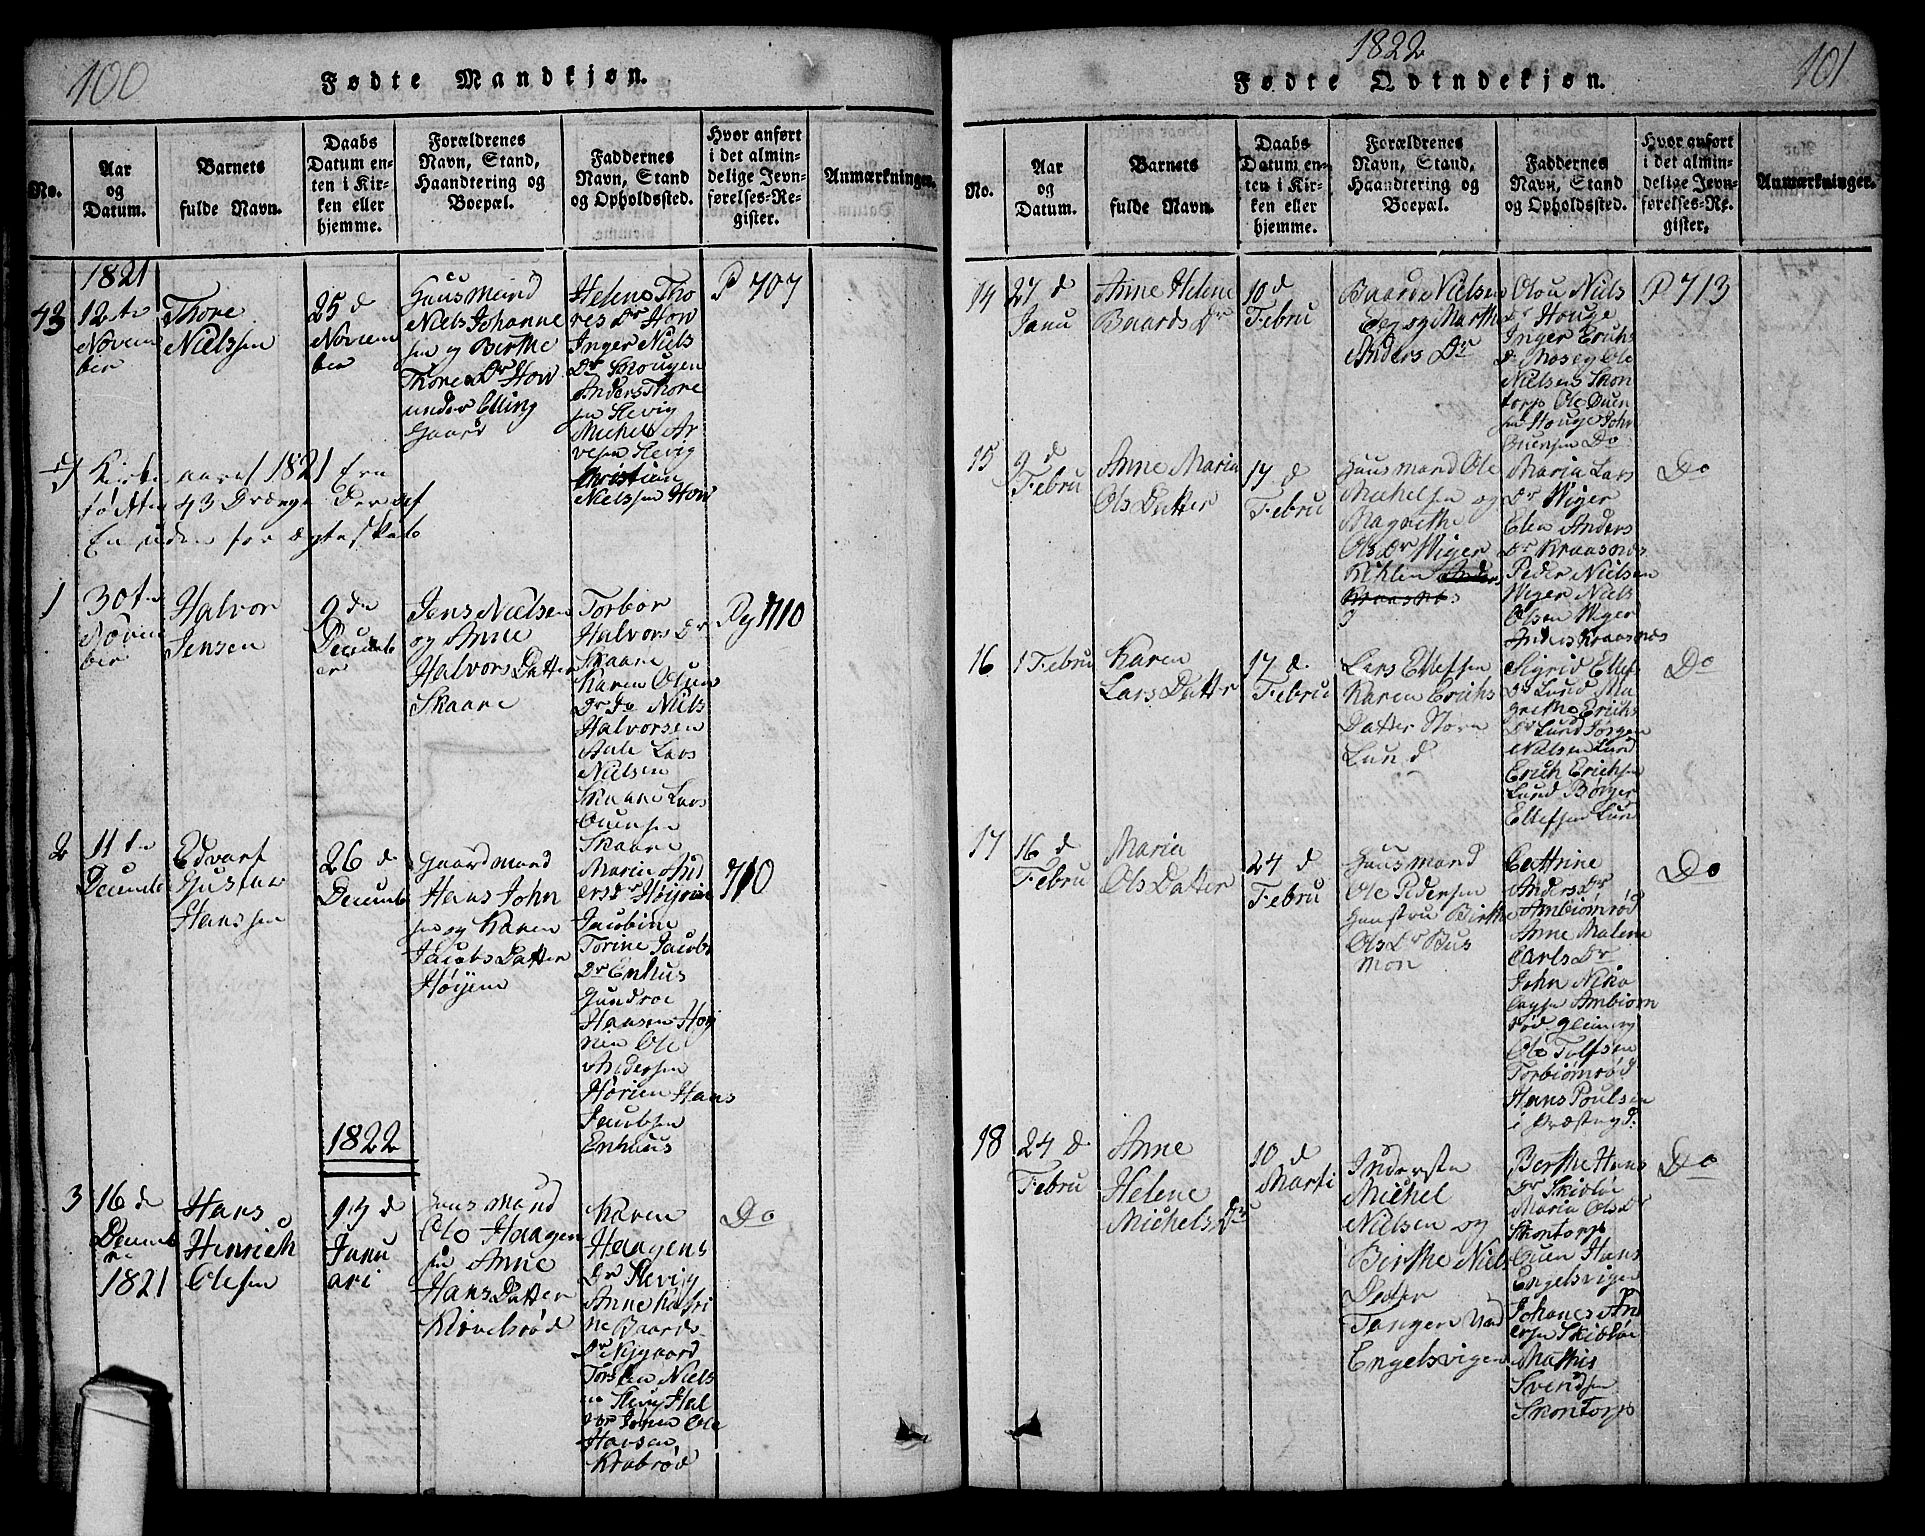 100
Fødte Mandkjøn.
No.
Aar
og
Datum.
Barnets
fulde Navn.
Daabs
Datum en-
ten i Kir-
ken eller
hjemme.
Forældrenes
Navn, Stand,
Haandtering og
Boepæl.
Faddernes
Navn, Stand
og Opholdssted.
Hvor anført
i det almin-
delige Jevn-
førelses-Re-
gister.
Anmærkninger.
1821
43
12te
Novem
ber
Thore
Nielssen
25 d
Novem
ber
Huusmand
Niels Johanne
sen og Birthe
Thores Dr How
under Elling
gaard
Helene Tho
res Dr How
Inger Niels
Dr Skougen
Anders Thore
sen Slevig
Michel Ar
vesen Slevig
Christian
Nielssen How
P 707
I Kirke aaret 1821 Ere
født 43 Drenge Der af
En uden for ægteskab
1
30te
Novem
ber
Halvor
Jensen
9 den
Decemb
er
Jens Nielsen
og Anne
Halvors Datter
Skaare
Torbor
Halvors Dr
Skaare
Karen Oluus
Dr do Niels
Halvorsen
Lars
Nielsen
Skaare Lars
Ouensen
Skaare
Pag 710
2
11te
Decemb
Edvart
Gustav
Hanssen
26 d
Decemb
Gaardmand
Hans John
sen og Karen
Jacobs Datter
Høyem
Maria And
ers Dr Høyrien
Jacobine
Torine Jacobs
Dr Enhus
Gundroe
Hansen Høy
rien Ole
Andersen
Hørien Hans
Jacobsen
Enhuus
710
1822
3
16 d
Decemb
er
1821
Hans
Henrich
Olesen
13 d
Janu
ari
Huusmand
Ole Haagen
sen Anne
Hans Datter
Kiøvelsrød
Karen
Haagens
Dr Slevig
Anne Katri
ne Baards
Dr Nygaard
Torsten Niels
en Slevig Hal
vor Jørn Ole
Hansen
Krabrød
Do
1822
101
Fødte Qvindekjøn.
No.
Aar
og
Datum.
Barnets
fulde Navn.
Daabs
Datum en-
ten i Kir-
ken eller
hjemme.
Forældrenes
Navn, Stand,
Haandtering og
Boepæl.
Faddernes
Navn, Stand
og Opholdssted.
Hvor anført
i det almin-
delige Jevn-
førelses-Re-
gister.
Anmærkninger.
14
27 d
Janu
Anne Helene
Baards Dr
10 d
Febru
Baard Nielsen
Eeg og Marthe
Anders Dr
Olou Niels
Dr Houge
Inger Erichs
Dr Moseg Ole
Nielsens Skon
torp Ole Ouen
sen Houge John
Ouensen Do
P 713
15
9 d
Febru
Anne Maria
Ols Datter
17 d
Febru
Huusmand Ole
Michelsen og
Magrethe
Ols Dr Wiger
Kihlen
Maria Lars
Dr Wiger
Elen Anders
Dr Kraasnæs
Peder Nielsen
Wiger Niels
Olsen Wiger
Anders Kraasnæs
Do
16
1 Febru
Karen
Lars Datter
17 d.
Febru
Lars Ellefsen
Karen Erichs
Datter Store
Lund
Sigrid Ellef
Dr Lund Ma
grethe Erichs
Dr Lund Jørgen
Nielsen Lund
Erich Erichsen
Lund Børger
Ellefsen Lund
Do
17
16 d
Febru
Maria
Ols Datter
24 d
Febru
Huusmand
Ole Pedersen
Huustru Birthe
Ols Dr Bus
mon
Cathrine
Anders Dr
Ambiørnrød
Anne Malene
Carls Dr
John Niko
laysen Ambiørn
rød
Ole Tolfsen
Torbiørnrød
Hans Poulsen
i Præstegd.
Do
18
24 d.
Febru
Anne
Helene
Michels Dr
10 d
Marti
Inderste
Michel
Nielsen og
Birthe Niels
Datter
Tangen ved
Engelsvigen
Berthe Hans
Dr Skibløe
Maria Ols Dr
Skontorp
Ouen Hans
Engelsvigen
Johanes An
ersen Skibløe
Mathis
Svendsen
Skontorp
Do